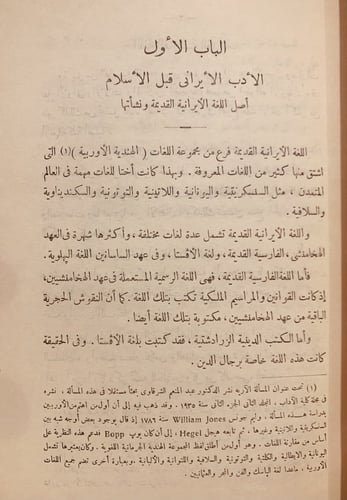 الباب الأول
الأدب الأيرانى قبل الأسلام
أصل اللغة الايرانية القديمة ونشأتها
اللغة الايرانية القديمة فرع من مجموعة اللغات ( الهندية الأوربية )(١) التى
اشتق منها كثير من اللغات المعروفة . وبهذا كانت أختا لغات مهمة فى العالم
المتمدن ، مثل السنسكريتية واليونانية واللاتينية والتوتونية والسكنديناوية
والسلافية .
واللغة الايرانية القديمة تشمل عدة لغات مختلفة ، وأكثرها شهرة فى العهد
الهخامنشى ، الفارسية القديمة ، ولغة الأفستا ، وفى عهد الساسانين اللغة البهلوية .
فأما اللغة الفارسية القديمة ، فهى اللغة الرسمية المستعملة فى عهد الهخامنشيين ،
إذ كانت القوانين والمراسيم الملكية تكتب بتلك اللغة . كما أن النقوش الحجرية
الباقية من عهد الهخامنشيين ، مكتوبة بتلك اللغة أيضا .
وأما الكتب الدينية الزرادشتية ، فقد كتبت بلغة الأفستا . وفى الحقيقة
كانت هذه اللغة خاصة برجال الدين .
(١) تحت عنوان المسألة الآرية نشر الدكتور عبد المنعم الشرقاوى بحثا مستقلا فى هذه المسألة ، نشره
فى مجلة كلية الآداب ، المجلد الثانى الجزء الثانى سنة ١٩٣٥ . وقد ذهب فيه إلى أن أول من اهتم من الأوربيين
بدراسة هذه المسألة ، وليم جونس William Jones سنة ١٧٨٦ إذ قال بوجود بعض أوجه شبه بين
السنسكريتية واللاتينية وغيرها . ثم تابعه هيجل Hegel ، إلى أن كان بوب Bopp فدعم هذه النظرية على
أساس من مقارنة اللغات . وهو أول من أطلق لفظ المجموعة الهندية الجرمانية اللغوية . وكان يعتبرها تشمل
اليونانية والايطالية والكلتية والتوتونية والسلافية واللتوانية والألبانية . وبعبارة أخرى تضم جميع اللغات
الأوربية ، ماعدا لغة الباسك والفن والمجر والعثمانيين .